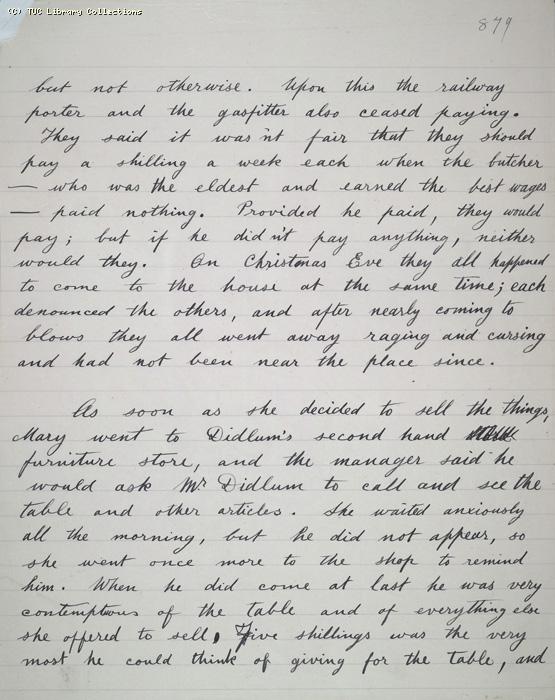 (C) TUC Library Collections
879
but not otherwise. Upon this the railway
porter and the gasfitter also ceased paying.
They said it was'nt fair that they should
pay a shilling a week each when the butcher
— who was the eldest and earned the best wages
— paid nothing. Provided he paid, they would
pay; but if he did n't pay anything, neither
would they. On Christmas Eve they all happened
to come to the house at the same time; each
denounced the others, and after nearly coming to
blows they all went away raging and cursing
and had not been near the place since.
As soon as she decided to sell the things,
Mary went to Didlum's second hand
furniture store, and the manager said he
would ask Mr Didlum to call and see the
table and other articles. She waited anxiously
all the morning, but he did not appear, so
she went once more to the shop to remind
him. When he did come at last he was very
contemptuous of the table and of everything else
she offered to sell. Five shillings was the very
most he could think of giving for the table, and